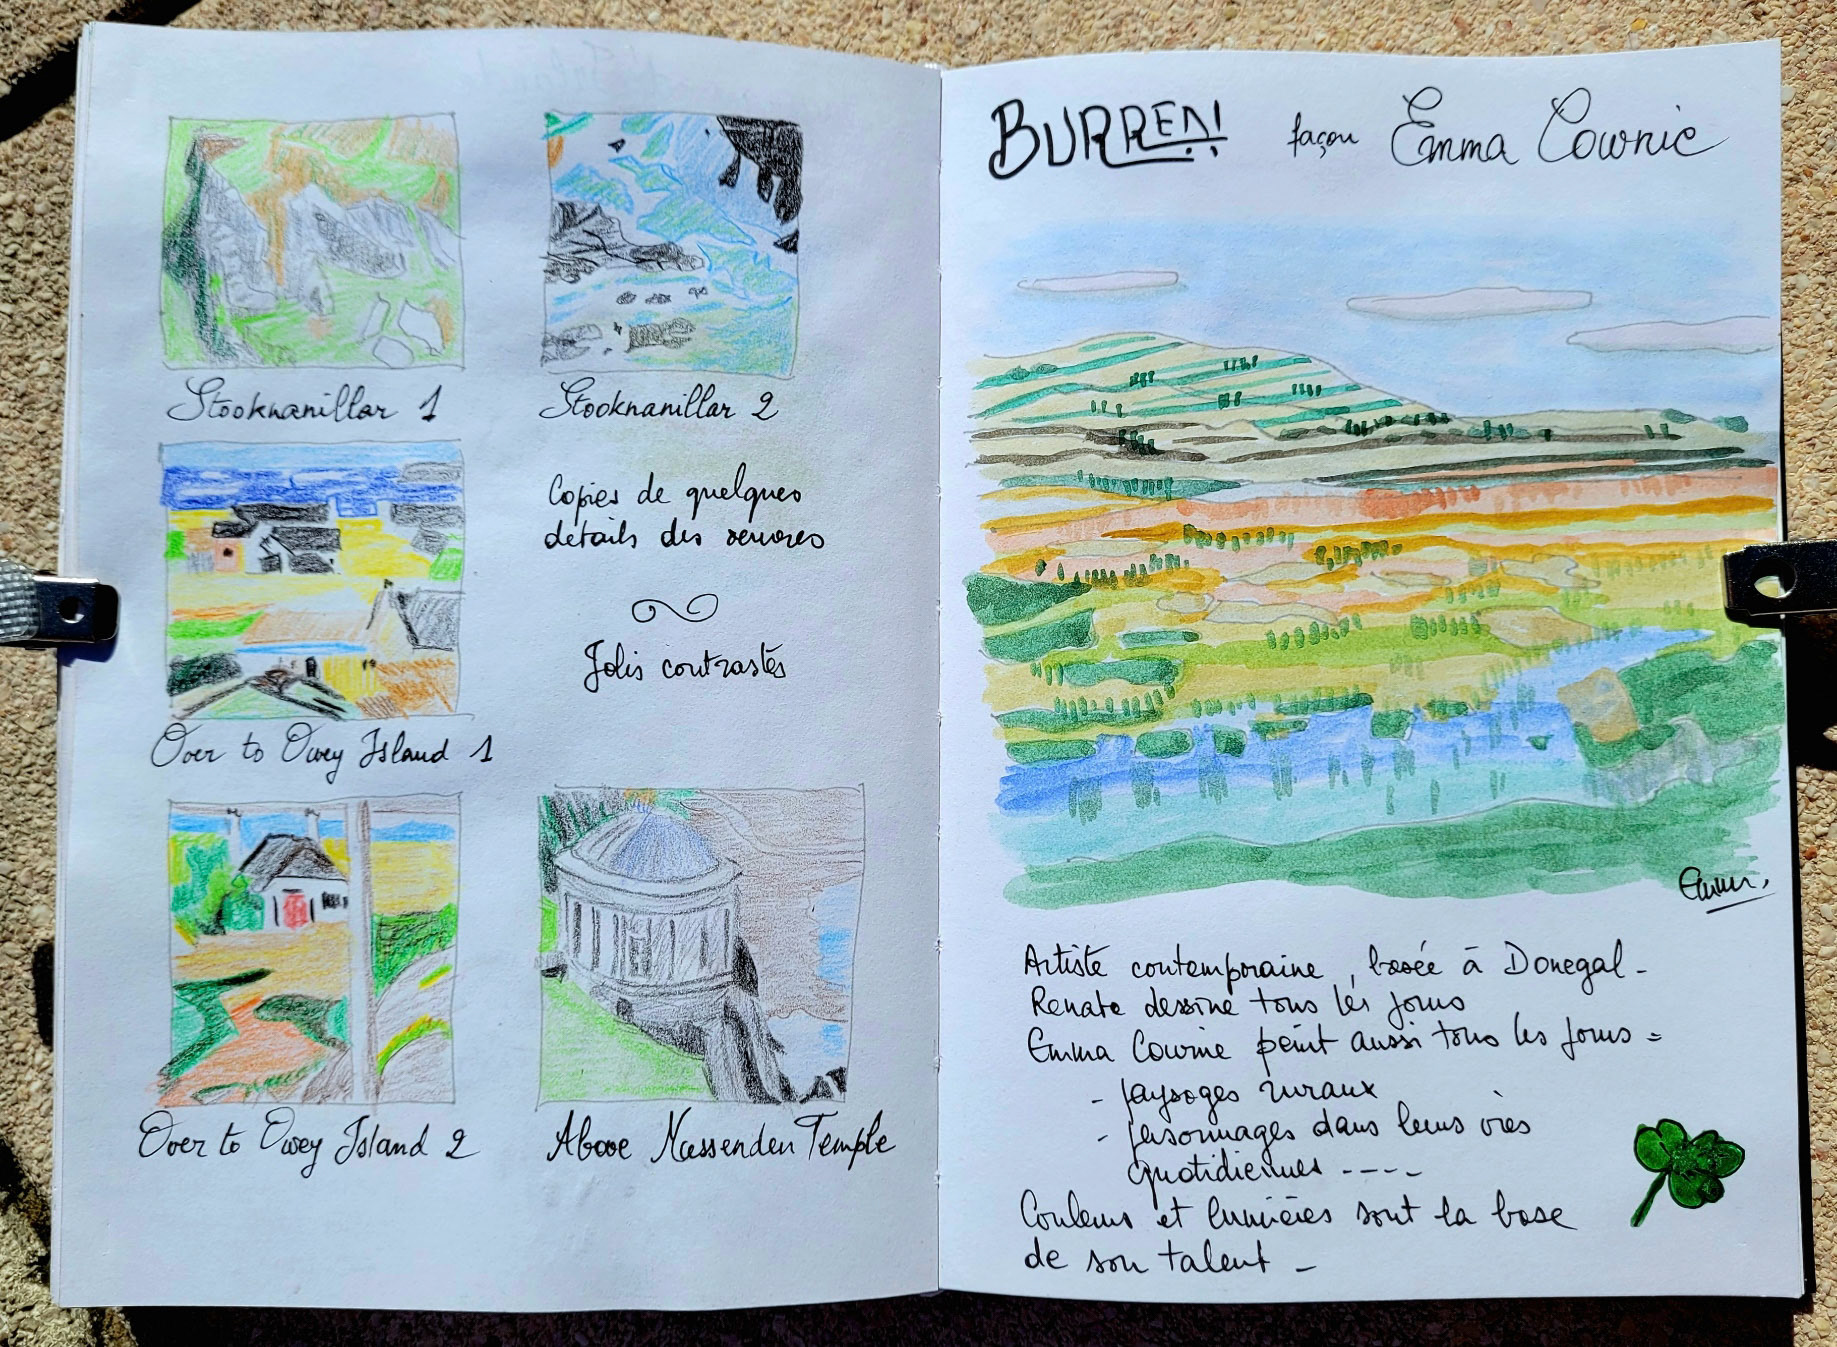 Stooknanillar 1
Stooknanillar 2
Copies de quelques
détails des œuvres
Jolis contrastes
Over to Owey Island 1
Over to Owey Island 2
Above Mussenden Temple
BURREN façon Emma Cownie
Artiste contemporaine, basée à Donegal -
Renate dessine tous les jours
Emma Cownie peint aussi tous les jours =
- paysages ruraux
- personnages dans leurs vies
quotidiennes ----
Couleurs et lumières sont la base
de son talent -